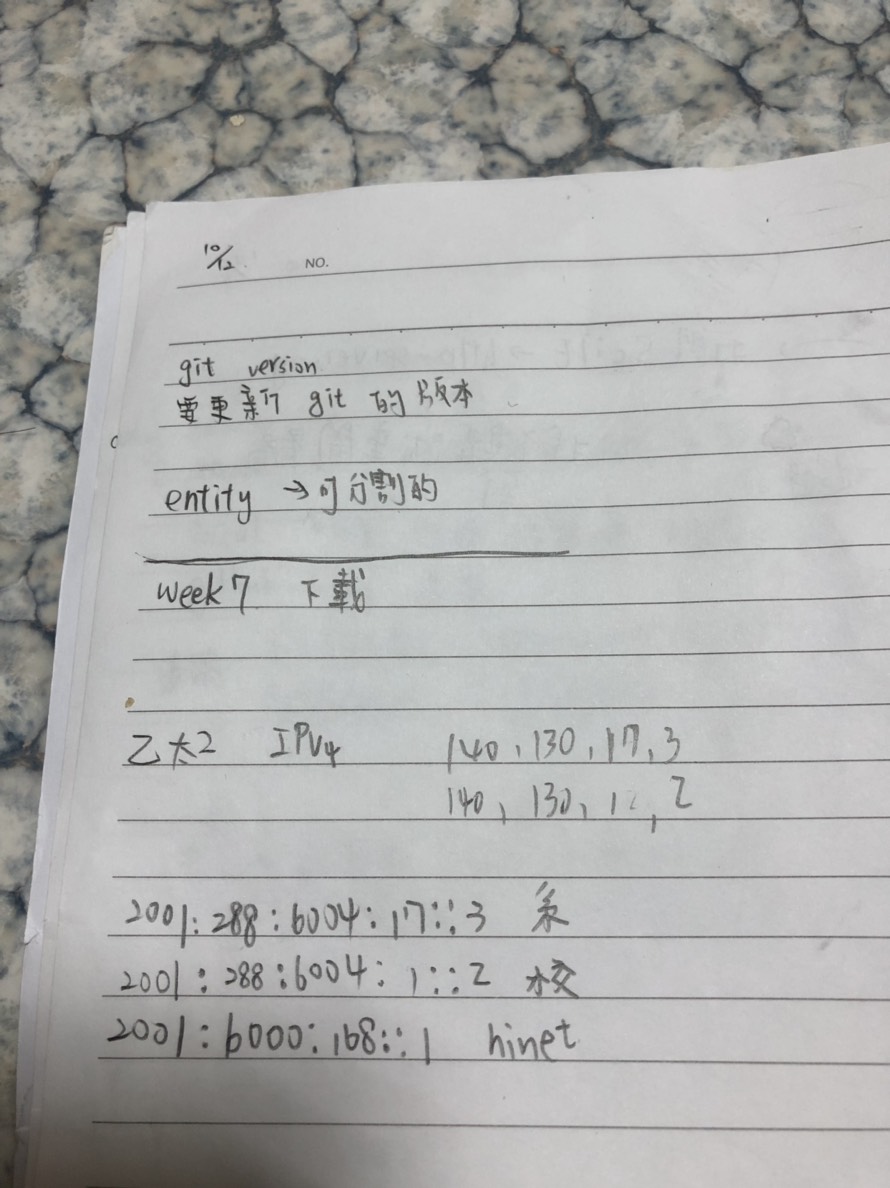 10/12 NO.
git version
要更新 git 的版本
entity → 可分割的
week 7 下載
乙太2 IPV4 140,130,17,3
140,130,1,2
2001:288:6004:17::3 系
2001:288:6004:1::2 校
2001:6000:168::1 hinet